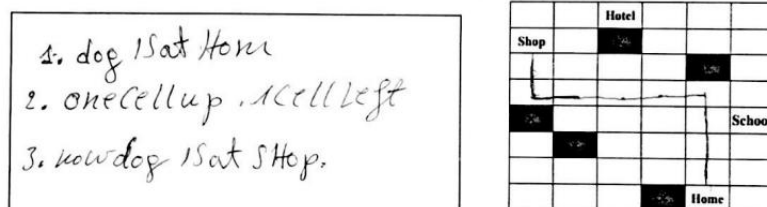 1. dog ISat Hom
2. onecellup . 1cell Left
3. now dog ISat SHop.
Hotel
Shop
Schoo
Home